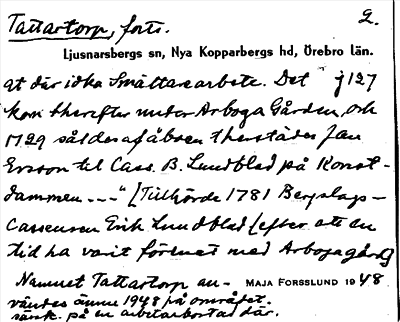 Tattartorp, forts. 2.
Ljusnarsbergs sn, Nya Kopparbergs hd, Örebro län.
at där idka Smältarearbete. Det 1727
kom therefter under Arboga Gården, och
1729 såldes af åboen therstädes Jan
Ersson til Cass. B. Lundblad på Konst-
dammen ---" [Tillhörde 1781 Bergslags-
Casseuren Erik Lundblad [efter att en
tid ha varit förenat med Arbogagård]
Namnet Tattartorp an- MAJA FORSSLUND 1948
vändes ännu 1948 på området.
särsk. på en arbetarbostad där.